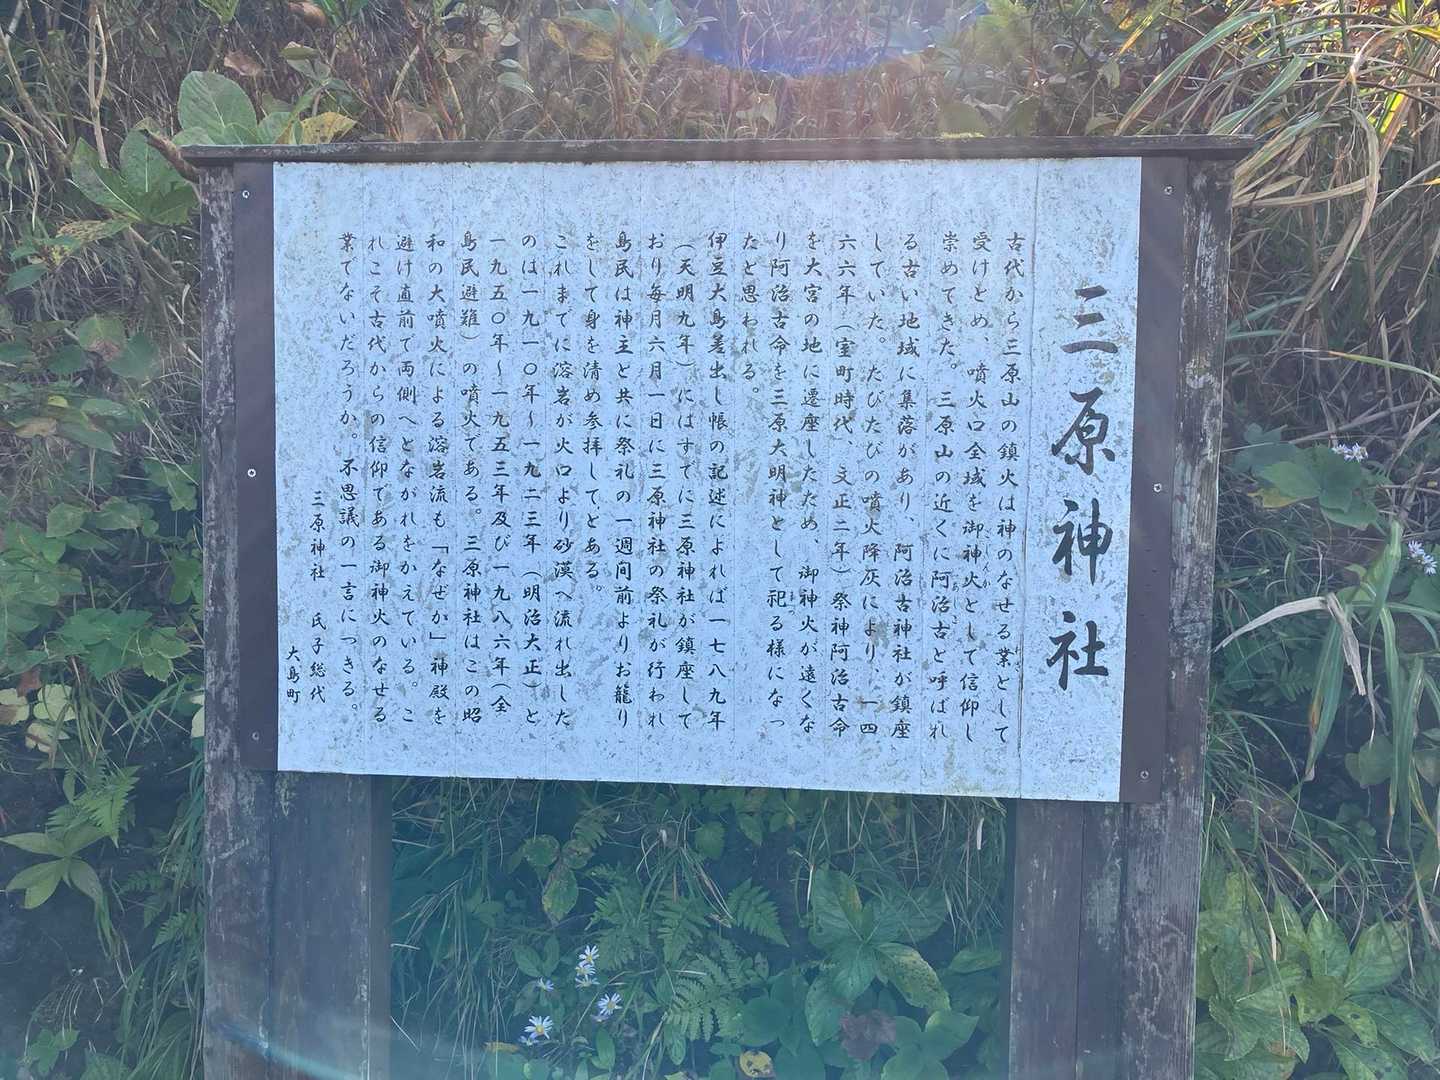 三原神社
古代から三原山の鎮火は神のなせる業として
わざ
受けとめ、噴火口全域を御神火として信仰し
ごしんか
崇めてきた。三原山の近くに阿治古と呼ばれ
あじこ
る古い地域に集落があり、阿治古神社が鎮座
していた。たびたびの噴火降灰により、一四
六六年（室町時代、文正二年）祭神阿治古命
を大宮の地に遷座したため、御神火が遠くな
り阿治古命を三原大明神として祀る様になっ
まつ
たと思われる。
伊豆大島差出し帳の記述によれば一七八九年
（天明九年）にはすでに三原神社が鎮座して
おり毎月六月一日に三原神社の祭礼が行われ
島民は神主と共に祭礼の一週间前よりお籠り
をして身を清め参拝してとある。
これまでに溶岩が火口より砂漠へ流れ出した
のは一九一〇年〜一九二三年（明治大正）と
一九五〇年〜一九五三年及び一九八六年（全
島民避難）の噴火である。三原神社はこの昭
和の大噴火による溶岩流も「なぜか」神殿を
避け直前で両側へとながれをかえている。こ
れこそ古代からの信仰である御神火のなせる
業でないだろうか。不思議の一言につきる。
三原神社　氏子総代
大島町